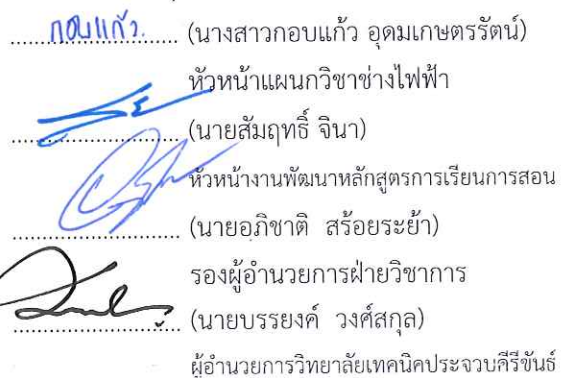 กอบแก้ว. (นางสาวกอบแก้ว อุดมเกษตรรัตน์)
หัวหน้าแผนกวิชาช่างไฟฟ้า
(นายสัมฤทธิ์ จินา)
หัวหน้างานพัฒนาหลักสูตรการเรียนการสอน
(นายอภิชาติ สร้อยระย้า)
รองผู้อำนวยการฝ่ายวิชาการ
(นายบรรยงค์ วงศ์สกุล)
ผู้อำนวยการวิทยาลัยเทคนิคประจวบคีรีขันธ์